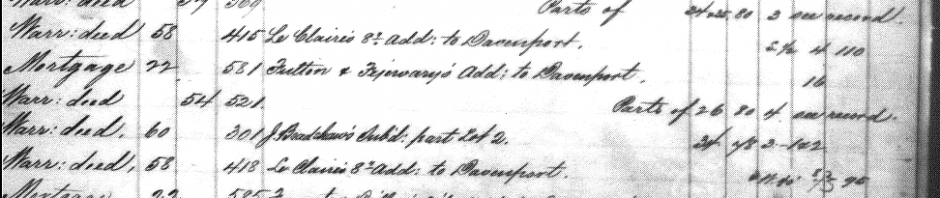 Warr: deed 54 369 Parts of 24 & 25. 80 2 see record.
Warr: deed 58 415 Le Claire's 8th Add: to Davenport. 4 110
Mortgage 22 581 Fulton & Fejervary's Add: to Davenport. 16
Warr: deed 54 521 Parts of 26 80 4 see record.
Warr: deed, 60 301 J. Bradshaw's Subd: part Lot 2. 34 2 1&2
Warr: deed, 58 418 Le Claire's 8th Add: to Davenport. 95
Mortgage 22 585